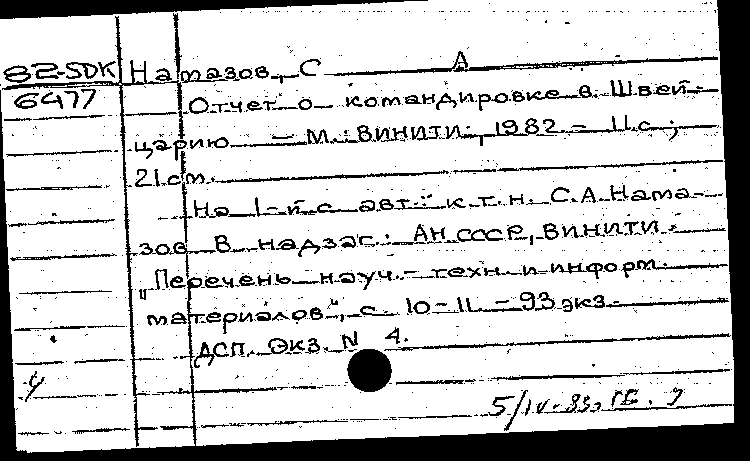 82-SDK Намазов, С А
6477 Отчет о командировке в Швей-
царию. – М.: ВИНИТИ, 1982 – 11 с;
21 cm.
На 1-й с авт.: к.т.н. С.А. Нама-
зов В надзаг.: АН СССР, ВИНИТИ.
"Перечень науч.- техн. и информ.
материалов", с. 10-11. – 93 экз.
ДСП. Экз. N 4.